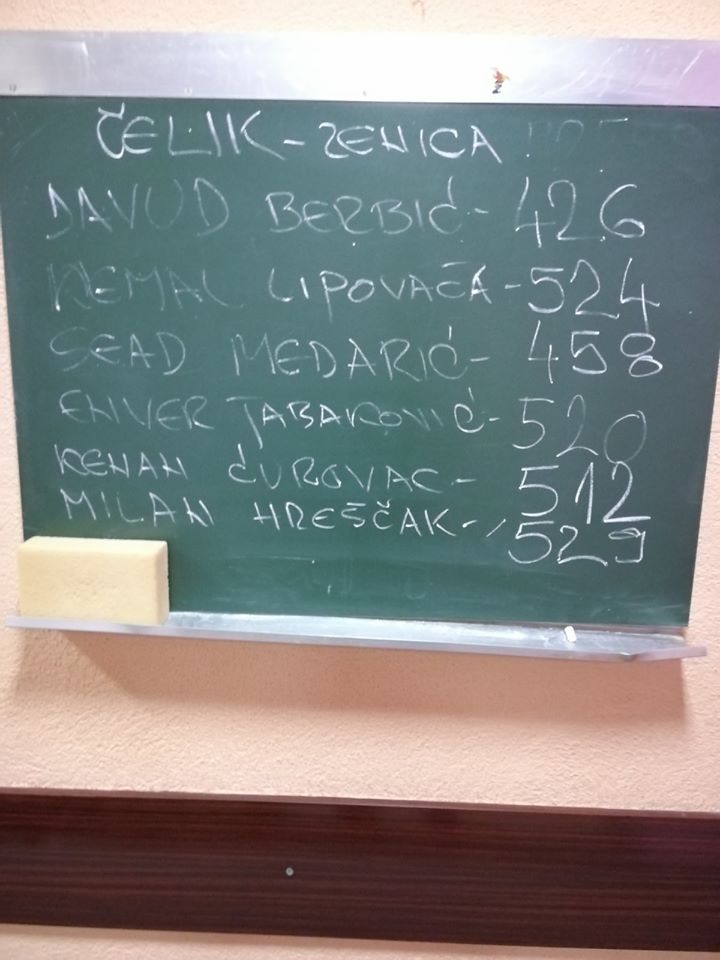 ČELIK - ZENICA
DAVUD BERBIĆ - 426
KEMAL LIPOVAČA - 524
SEAD MEDARIĆ - 458
ENVER TABAKOVIĆ - 520
KENAN ĆUROVAC - 512
MILAN HREŠČAK - 529